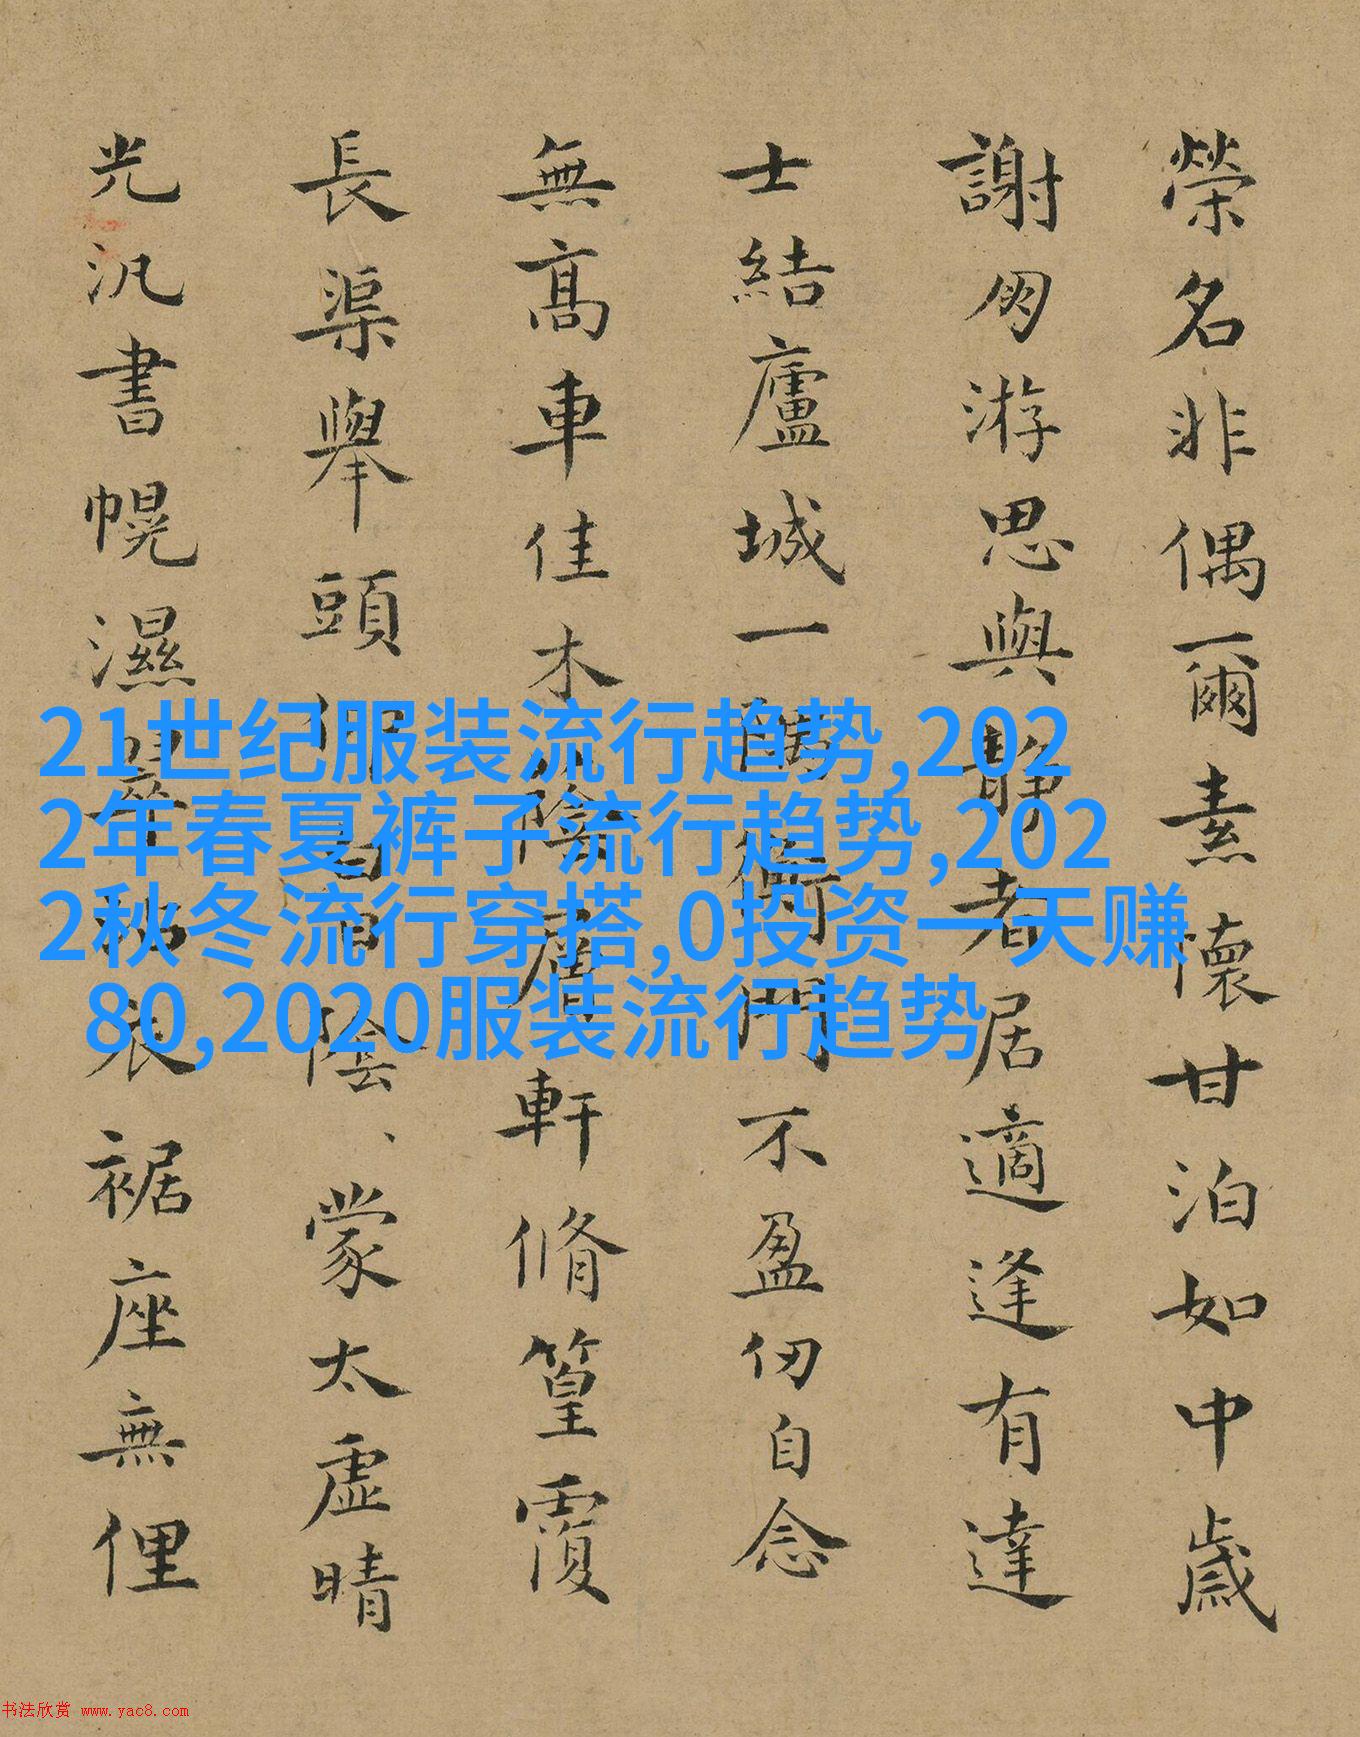 榮名非偶爾素懷甘泊如中歲
謝勿游思與靜者居適逢有達
士結廬城一隅衡門不盈仞自念
無高車佳木陰廣軒脩篁覆
長渠舉頭陰、蒙太虛晴
光汎書幌濕翠衣裾座無俚
21世纪服装流行趋势,202
2年春夏裤子流行趋势,202
2秋冬流行穿搭,0投资一天赚
80,2020服装流行趋势
书法欣赏 www.yac8.com